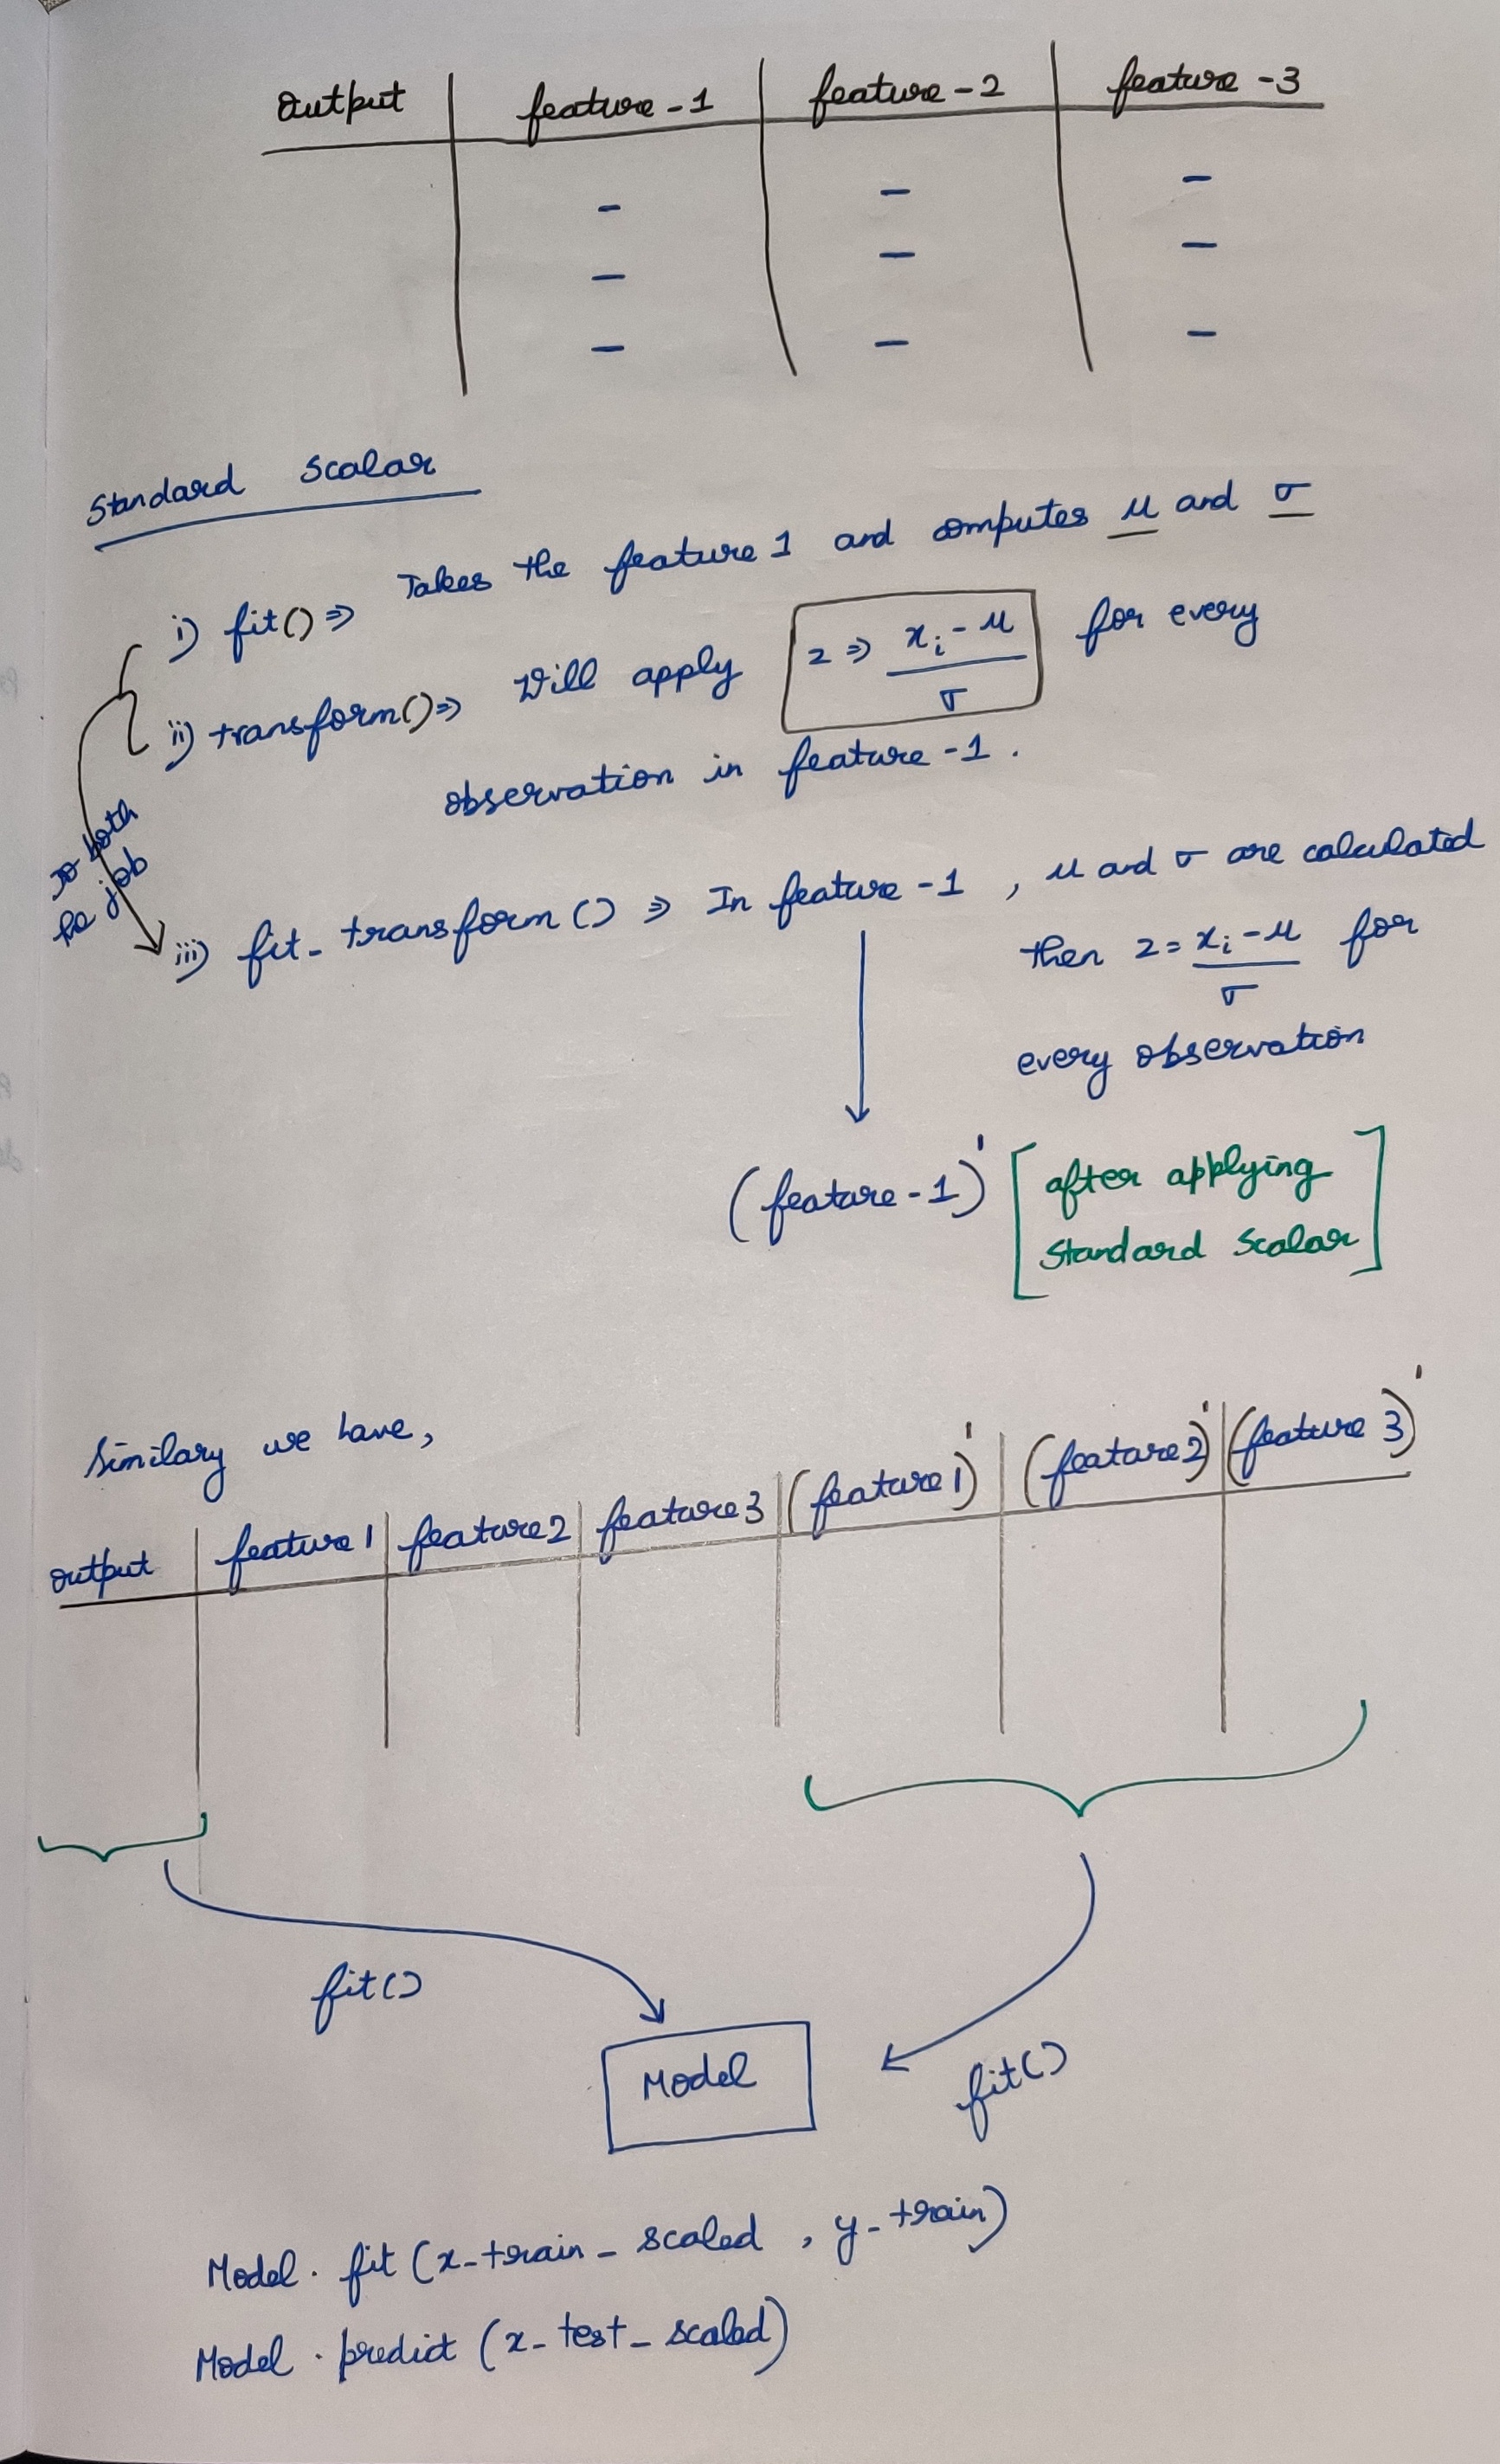 output feature-1 feature-2 feature-3
- - -
- - -
- - -
Standard Scalar
i) fit() => Takes the feature 1 and computes μ and σ
ii) transform() => Will apply z => (xᵢ - μ)/σ for every
observation in feature-1.
To both
he job
iii) fit_transform() => In feature-1, μ and σ are calculated
then z = (xᵢ - μ)/σ for
every observation
(feature-1)' [after applying
Standard Scalar]
Similary we have,
output feature1 feature2 feature3 (feature1)' (feature2)' (feature3)'
fit()
Model
fit()
Model. fit(x-train_scaled, y-train)
Model. predict (x-test_scaled)